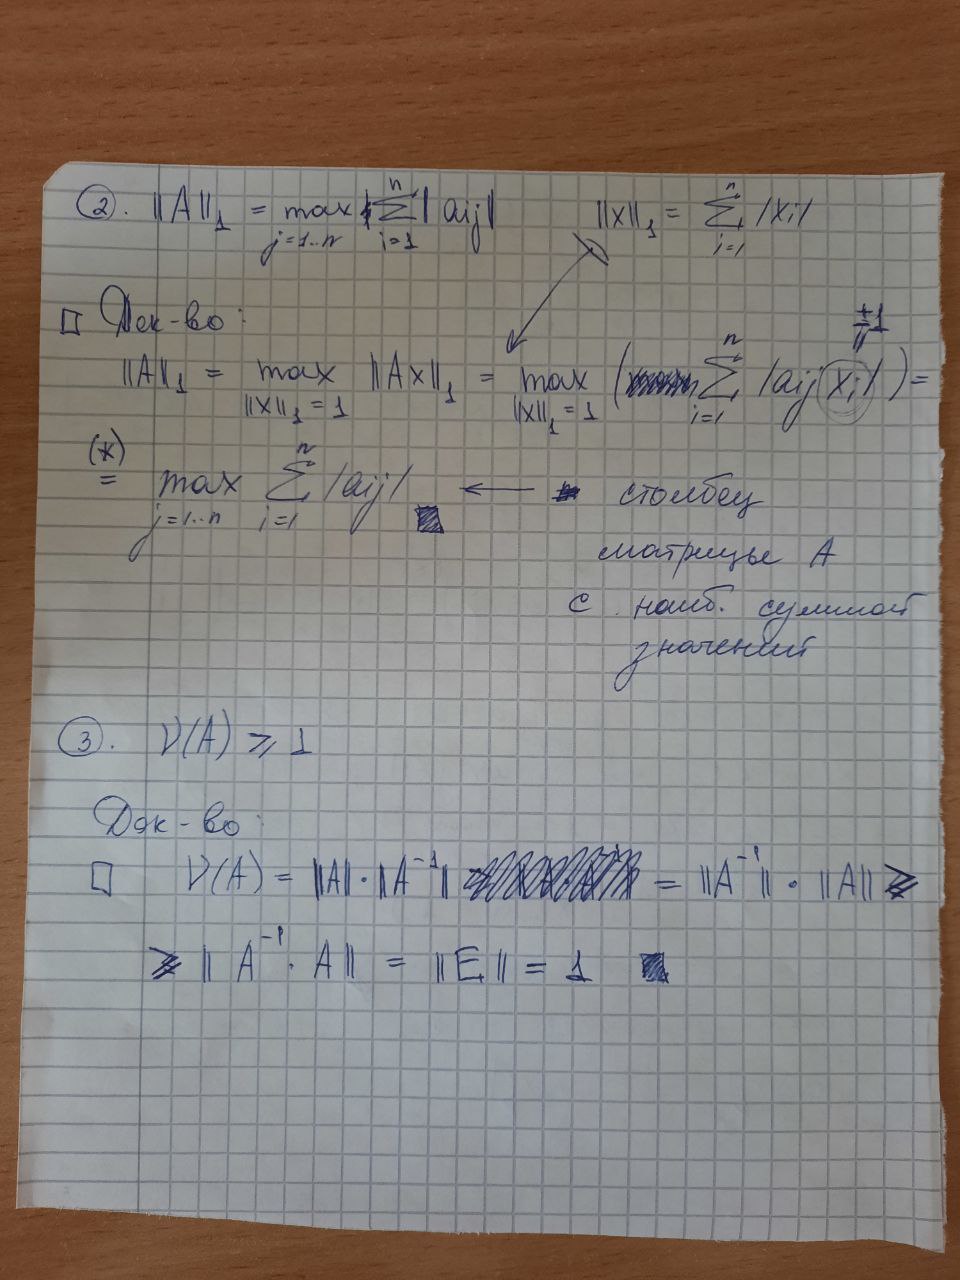 2. ||A||₁ = max_{j=1..n} Σ_{i=1}^{n} |aij| ||x||₁ = Σ_{i=1}^{n} |xi|
□ Док-во:
±1
||A||₁ = max_{||x||₁=1} ||Ax||₁ = max_{||x||₁=1} ( Σ_{i=1}^{n} |aij xi| ) =
(*) = max_{j=1..n} Σ_{i=1}^{n} |aij| ■ ← столбец
матрицы A
с наиб. суммой
значений
3. ν(A) ⩾ 1
Док-во:
□ ν(A) = ||A|| · ||A⁻¹|| = ||A⁻¹|| · ||A|| ⩾
⩾ ||A⁻¹ · A|| = ||E|| = 1 ■